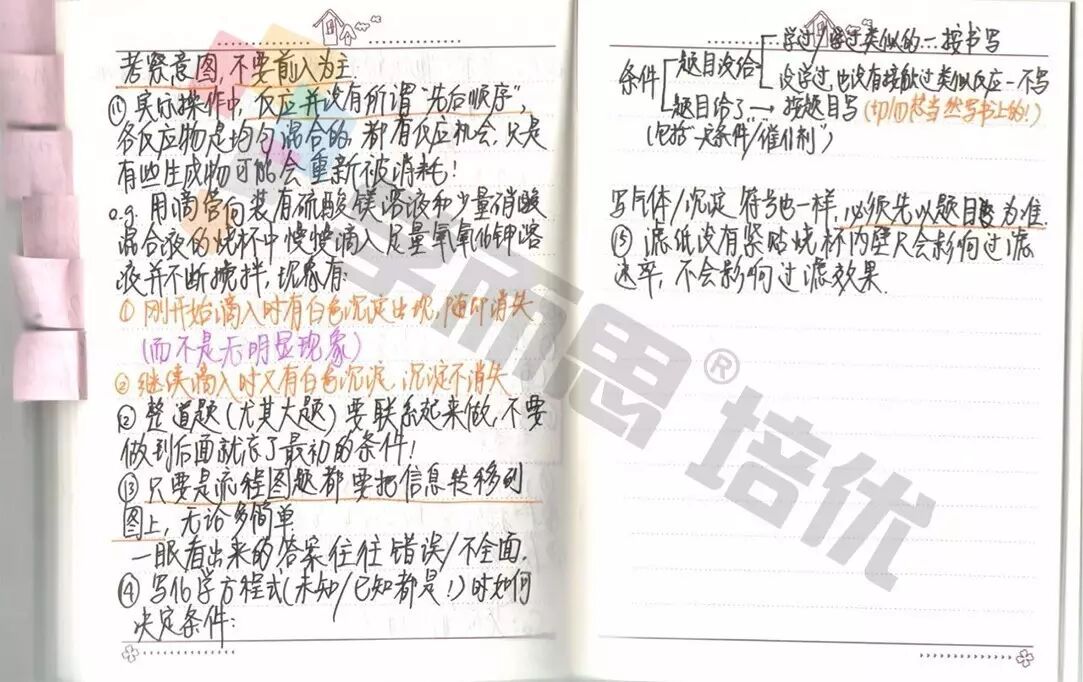 考察意图,不要前入为主.
⑪ 实际操作中,反应并没有所谓“先后顺序”,
各反应物是均匀混合的,都有反应机会,只是
有些生成物可能会重新被消耗!
e.g. 用滴管向装有硫酸镁溶液和少量硝酸
混合液的烧杯中慢慢滴入足量氢氧化钾溶
液并不断搅拌,现象有:
① 刚开始滴入时有白色沉淀出现,随即消失
(而不是无明显现象)
② 继续滴入时又有白色沉淀,沉淀不消失
⑫ 整道题(尤其大题)要联系起来做,不要
做到后面就忘了最初的条件!
⑬ 只要是流程图题都要把信息转移到
图上,无论多简单.
一眼看出来的答案往往错误/不全面.
⑭ 写化学方程式(未知/已知都是!)时如何
决定条件:
条件
题目没给
学过/学过类似的一按书写
没学过,也没有接触过类似反应一不写
题目给了→按题目写(切勿想当然写书上的!)
(包括“一定条件/催化剂”)
写气体/沉淀符号也一样,必须先以题目为准.
⑮ 滤纸没有紧贴烧杯内壁只会影响过滤
速率,不会影响过滤效果.
学而思®培优